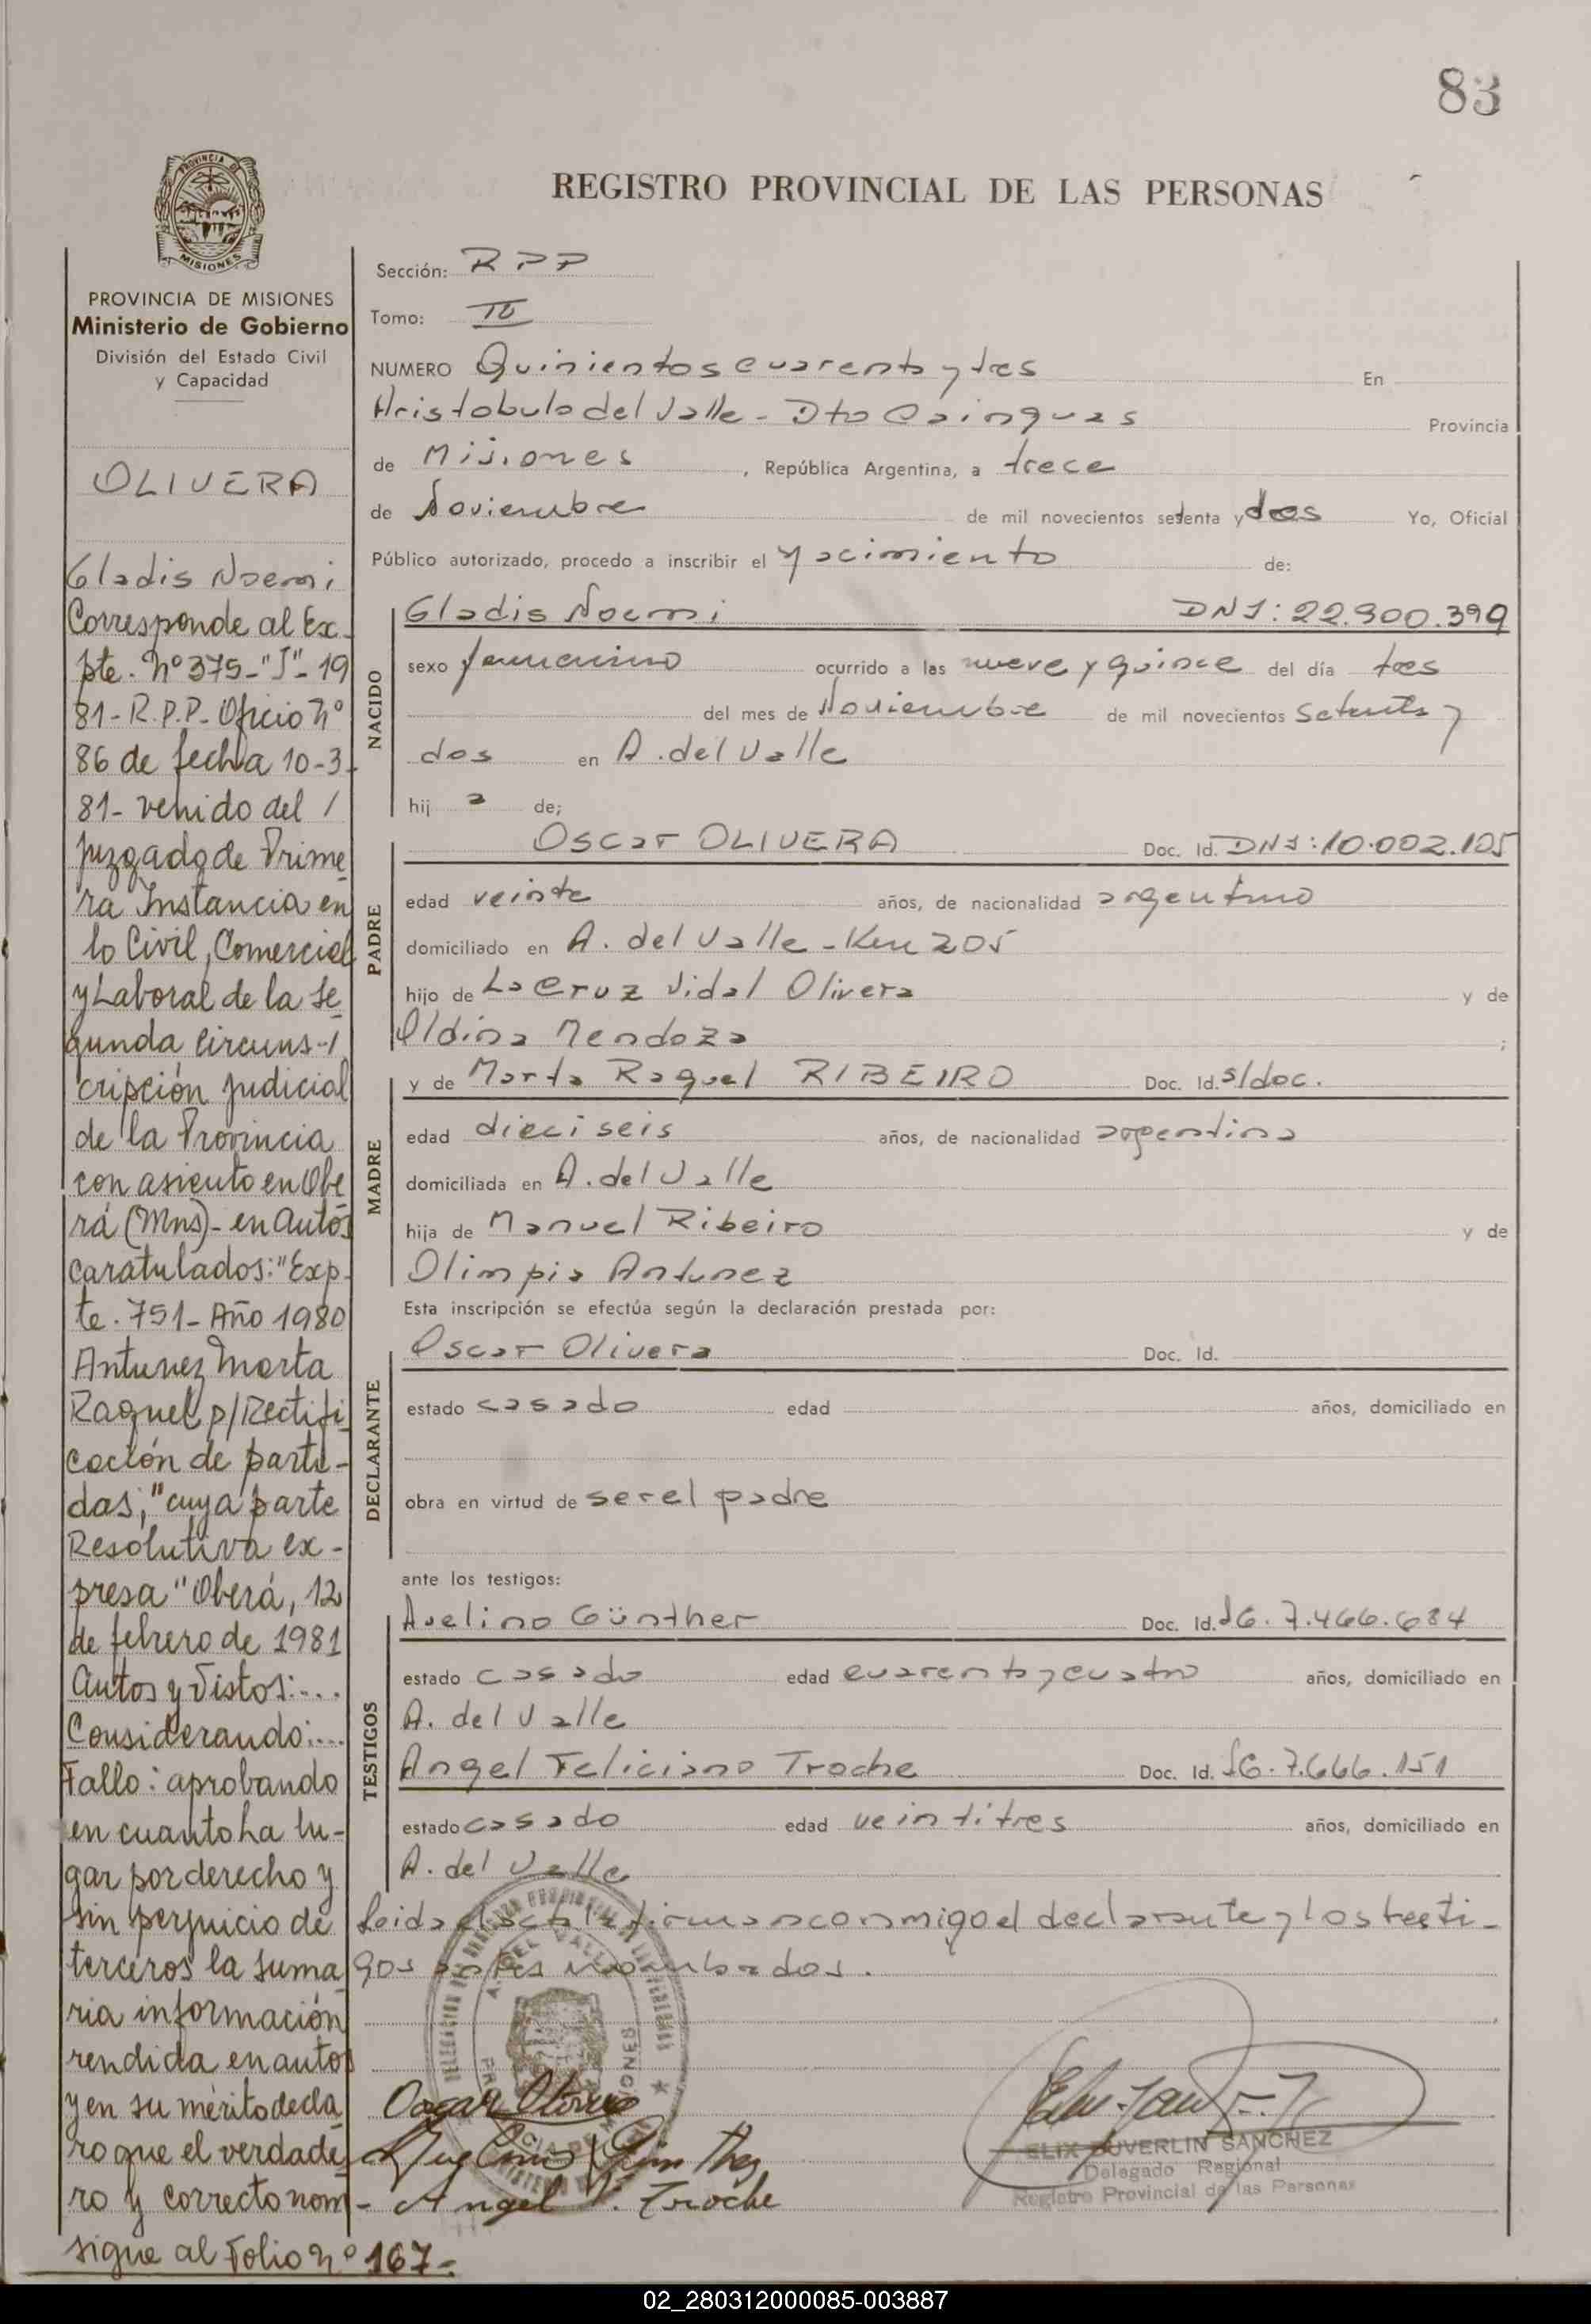 83
PROVINCIA DE
MISIONES
REGISTRO PROVINCIAL DE LAS PERSONAS
PROVINCIA DE MISIONES
Ministerio de Gobierno
División del Estado Civil
y Capacidad
OLIVERA
Gladis Noemi
Corresponde al Ex-
pte. Nº 375-"J"-19
81- R.P.P. Oficio Nº
86 de fecha 10-3-
81- venido del /
Juzgado de Prime
ra Instancia en
lo Civil, Comercial
y Laboral de la Se
gunda Circuns-/
cripción Judicial
de la Provincia
con asiento en Obe
rá (Mns)- en Autos
Caratulados: "Exp-
te. 751- Año 1980
Antunez Marta
Raquel p/Rectifi
cación de parti-
das;" cuya parte
Resolutiva ex-
presa "Oberá, 12
de febrero de 1981
Autos y Vistos:...
Considerando:...
Fallo: aprobando
en cuanto ha lu-
gar por derecho y
sin perjuicio de
terceros la suma
ria información
rendida en autos
y en su mérito decla
ro que el verdade
ro y correcto nom-
sigue al Folio Nº 167-
Sección: RPP
Tomo: III
NUMERO Quinientos cuarenta y tres En
Aristobulo del Valle - Dto Cainguas Provincia
de Misiones, República Argentina, a trece
de Noviembre de mil novecientos setenta y dos Yo, Oficial
Público autorizado, procedo a inscribir el Nacimiento de:
NACIDO
Gladis Noemi DNI: 22.900.399
sexo femenino ocurrido a las nueve y quince del día tres
del mes de Noviembre de mil novecientos setenta y
dos en A. del Valle
hij a de;
PADRE
Oscar OLIVERA Doc. Id. DNI: 10.002.105
edad veinte años, de nacionalidad argentino
domiciliado en A. del Valle - Km 205
hijo de La Cruz Vidal Olivera y de
Oldina Mendoza ;
MADRE
y de Marta Raquel RIBEIRO Doc. Id. s/doc.
edad dieciseis años, de nacionalidad argentina
domiciliada en A. del Valle
hija de Manuel Ribeiro y de
Olimpia Antunez
Esta inscripción se efectúa según la declaración prestada por:
DECLARANTE
Oscar Olivera Doc. Id.
estado casado edad años, domiciliado en
obra en virtud de ser el padre
ante los testigos:
TESTIGOS
Avelino Günther Doc. Id. 7.466.684
estado casado edad cuarenta y cuatro años, domiciliado en
A. del Valle
Angel Feliciano Troche Doc. Id. 7.666.151
estado casado edad veintitres años, domiciliado en
A. del Valle
Leida el acta la firman conmigo el declarante y los testi-
gos antes nombrados.
Oscar Olivera
Günther
Angel F. Troche
ELIX DUVERLIN SANCHEZ
Delegado Regional
Registro Provincial de las Personas
02_280312000085-003887